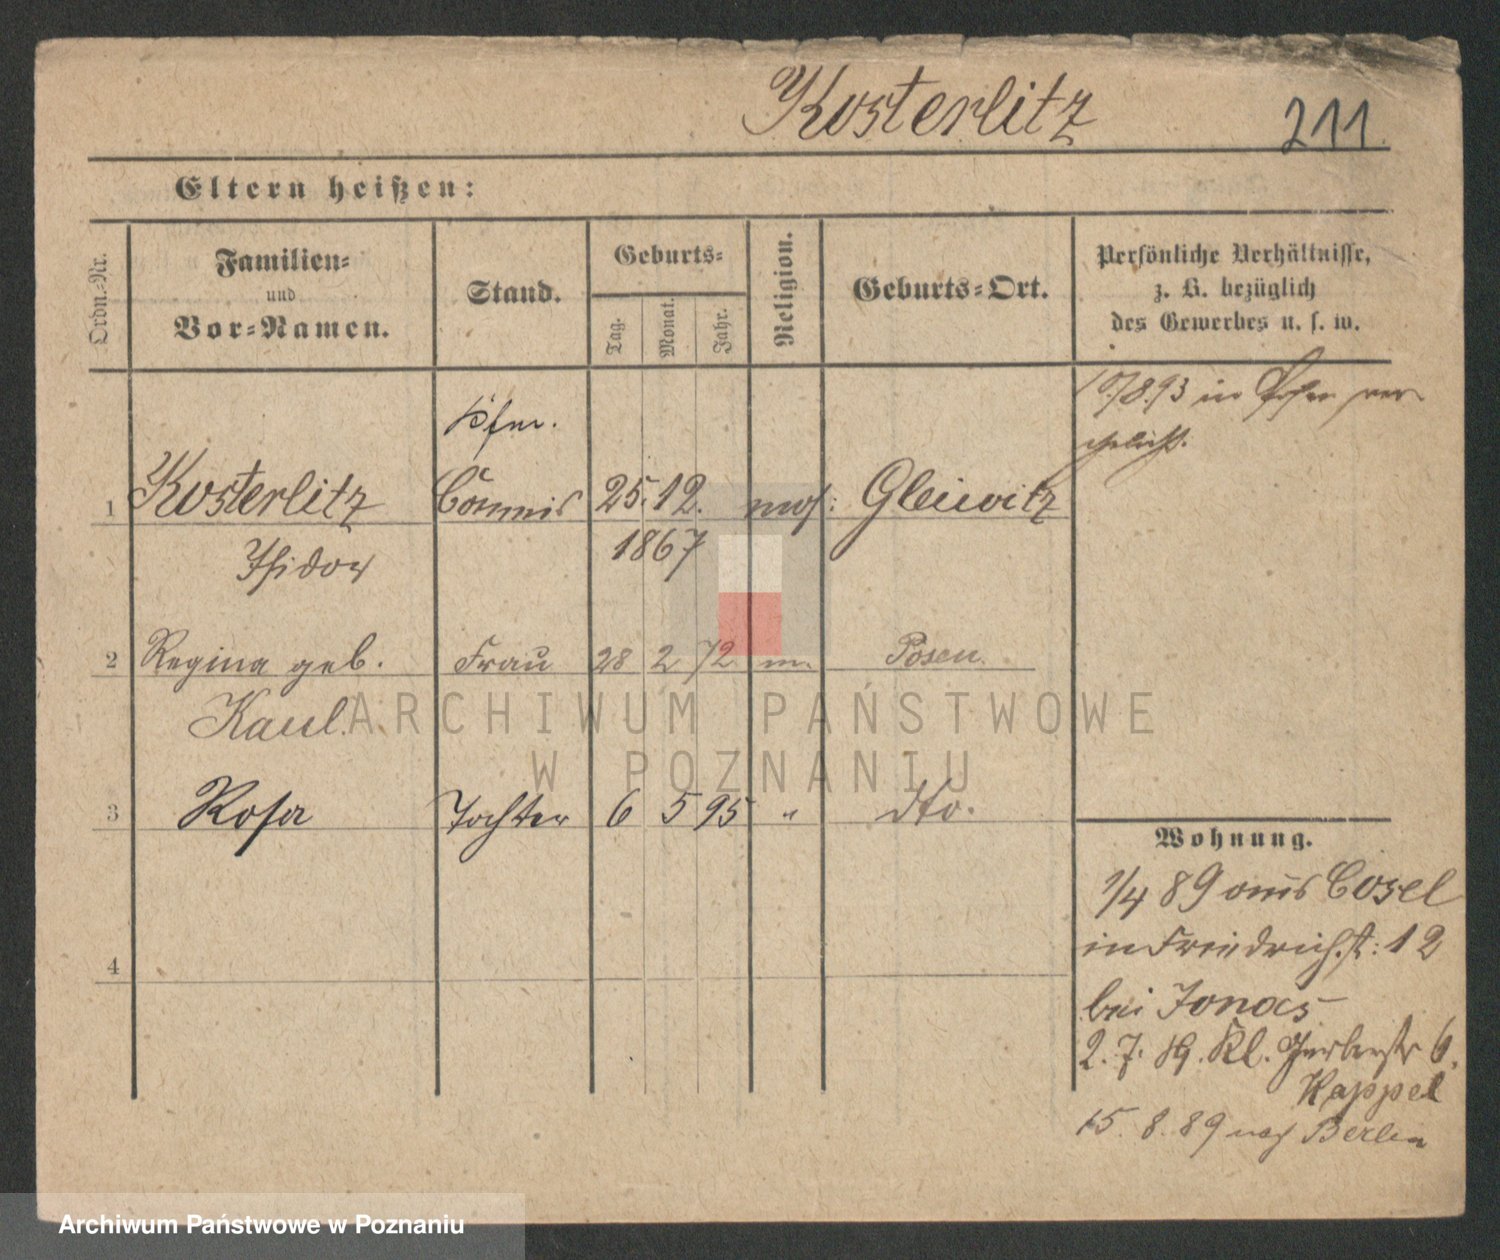 Kosterlitz 211.
Eltern heißen:
Ordn.-Nr.
Familien-
und
Vor-Namen.
Stand.
Geburts-
Tag.
Monat.
Jahr.
Religion.
Geburts-Ort.
Persönliche Verhältnisse,
z. B. bezüglich
des Gewerbes u. s. w.
10/8.93 in Posen ver-
ehelicht.
Kfm.
1 Kosterlitz Commis 25. 12. mos: Gleiwitz
Isidor 1867
2 Regina geb. Frau 28 2 72 m. Posen.
Kaul.
3 Rosa Tochter 6 5 95 " dto.
4
Wohnung.
1/4 89 aus Cosel
in Friedrichst: 12
bei Jonas
2. 7. 89. Kl. Gerberstr 6.
Kappel
15. 8. 89 nach Berlin
ARCHIWUM PAŃSTWOWE
W POZNANIU
Archiwum Państwowe w Poznaniu